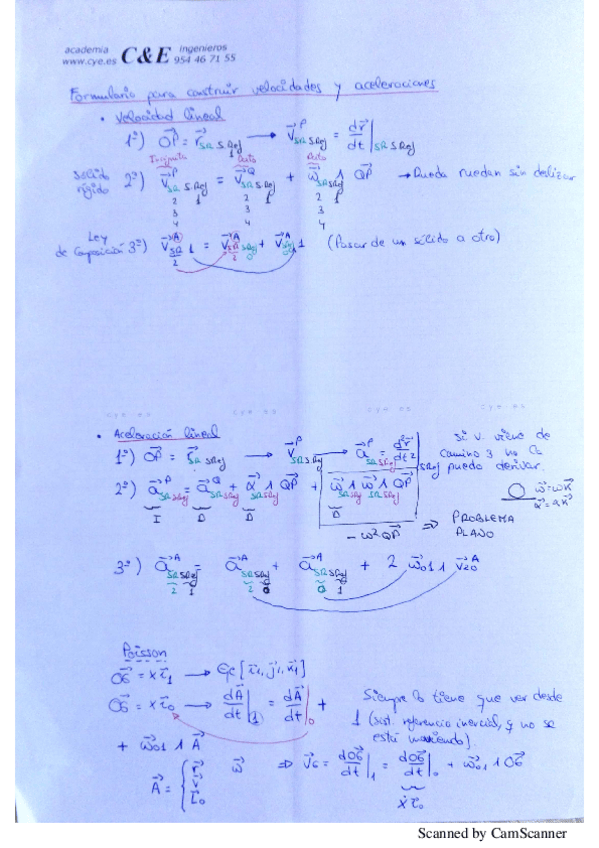 academia C&E ingenieros
www.cye.es 954 46 71 55
Formulario para construir velocidades y aceleraciones
• Velocidad lineal
1º) OP⃗ = r⃗ SR SRef → v⃗ᴾ SR SRef = dr⃗/dt | SR SRef
Incógnita Dato Dato
Sólido rígido 2º) v⃗ᴾ SR SRef = v⃗ᵠ SR SRef + ω⃗ SR SRef ∧ QP⃗ → Rueda ruedan sin deslizar
2 1 2 1 2
3 3 3
4 4 4
Ley de Composición 3º) v⃗ᴬ SR 1 = v⃗ᴬ SR SRef + v⃗ᴬ 1 (Pasar de un sólido a otro)
2 2 0 0
cye es cye es cye es cye es
• Aceleración lineal
1º) OP⃗ = r⃗ SR SRef → v⃗ᴾ SR SRef → a⃗ᴾ SR SRef = d²r⃗/dt² | SR SRef
Si v. viene de camino 3 no la puedo derivar.
2º) a⃗ᴾ SR SRef = a⃗ᵠ SR SRef + α⃗ SR SRef ∧ QP⃗ + ω⃗ SR SRef ∧ ω⃗ SR SRef ∧ QP⃗
I D D D
ω⃗ = ωK⃗
α⃗ = αK⃗
-ω² QP⃗ ⇒ PROBLEMA PLANO
3º) a⃗ᴬ SR SRef = a⃗ᴬ SR SRef + a⃗ᴬ SR SRef + 2 ω⃗01 ∧ v⃗ᴬ20
2 1 2 0 0 1
Poisson
OG⃗ = x i⃗1 → [i⃗1, j⃗1, k⃗1]
OG⃗ = x i⃗0 → dA⃗/dt |1 = dA⃗/dt |0 +
+ ω⃗01 ∧ A⃗
Siempre lo tiene que ver desde 1 (sist. referencia inercial, q no se está moviendo).
A⃗ = { r⃗ v⃗ i⃗0 ω⃗ ⇒ v⃗G = dOG⃗/dt |1 = dOG⃗/dt |0 + ω⃗01 ∧ OG⃗
ẋ i⃗0
Scanned by CamScanner